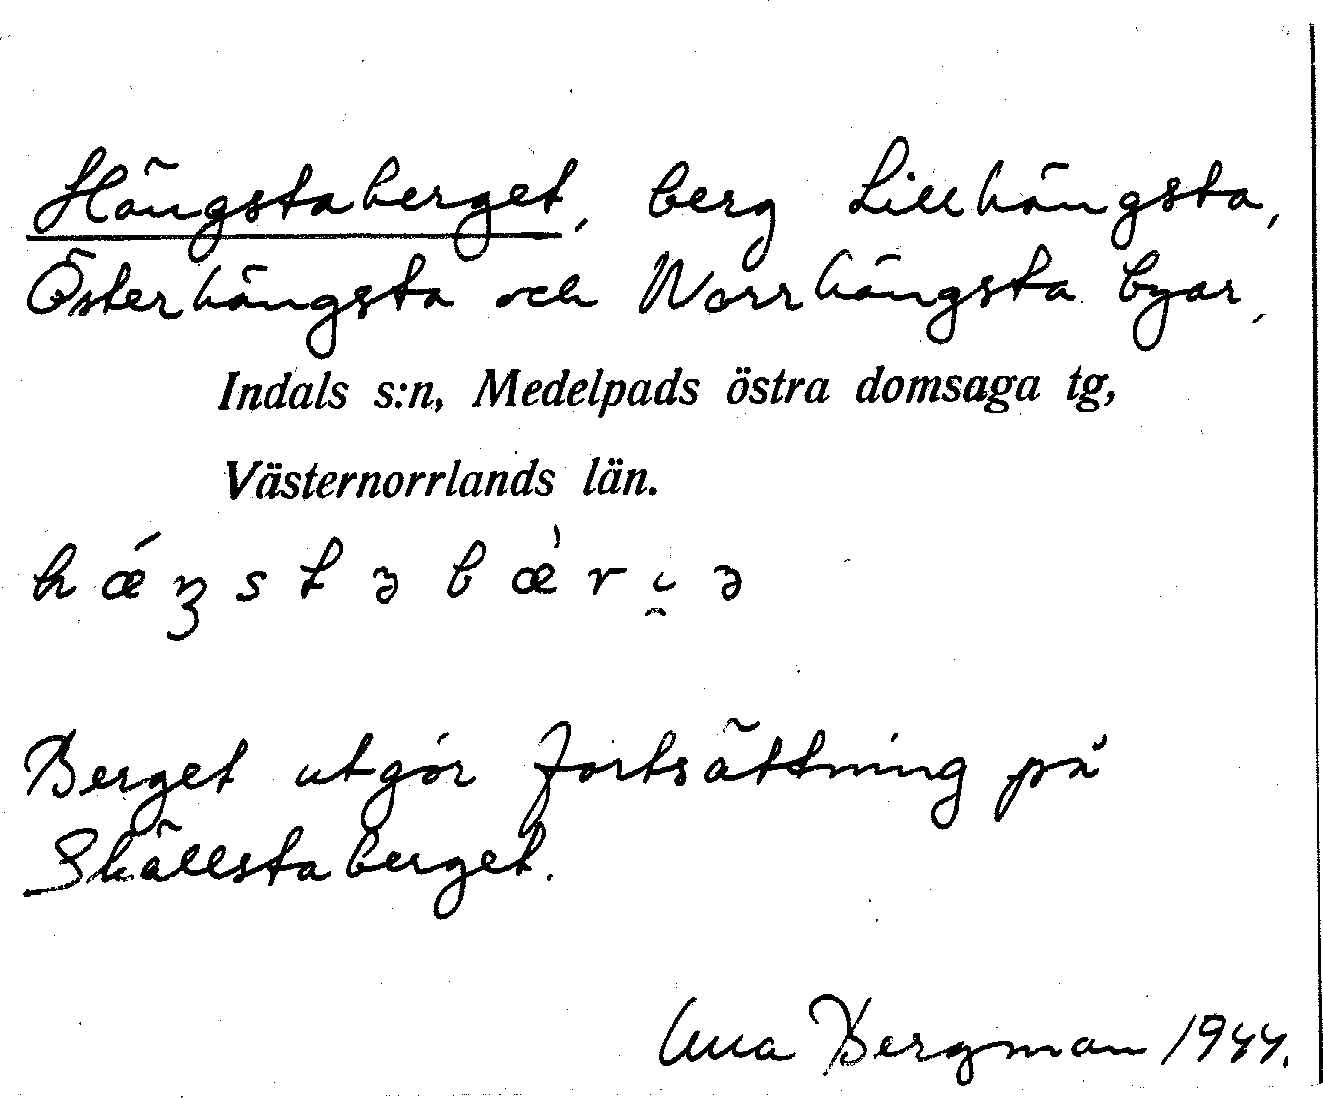 Hängstaberget, berg Lillhängsta,
Österhängsta och Norrhängsta byar,
Indals s:n, Medelpads östra domsaga tg,
Västernorrlands län.
hǽŋstəbæ̀ri̯ə
Berget utgör fortsättning på
Skällstaberget.
Bergman 1944.